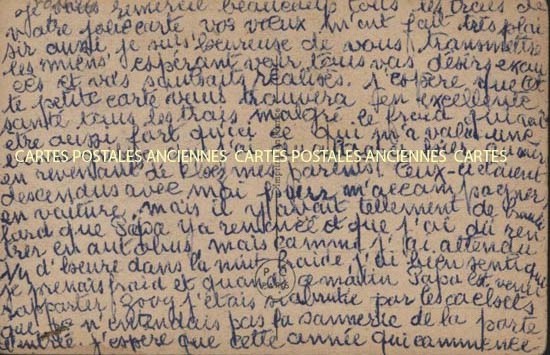 Je vous remercie beaucoup tous les trois de
votre jolie carte vos vœux m'ont fait très plai
sir aussi je suis heureuse de vous transmettre
les miens espérant voir tous vos désirs exau
cés et vos souhaits réalisés. J'espère que cet
te petite carte vous trouvera en excellente
santé tous les trois malgré le froid qui doit
être aussi fort qu'ici ce qui m'a valu une
CARTES POSTALES ANCIENNES CARTES POSTALES ANCIENNES CARTES POSTALES ANCIENNES
en revenant de chez mes parents. Ceux-ci étaient
descendus avec moi pour m'accompagner
en voiture, mais il y avait tellement de brouil
lard que Papa y a renoncé et que j'ai dû ren
trer en autobus, mais comme j'ai attendu
d'heure dans la nuit froide j'ai bien senti que
je prenais froid et quand ce matin Papa est venu
rapporter j'étais abrutie par les cachets
que je n'entendais pas la sonnerie de la porte
d'entrée. J'espère que cette année qui commence